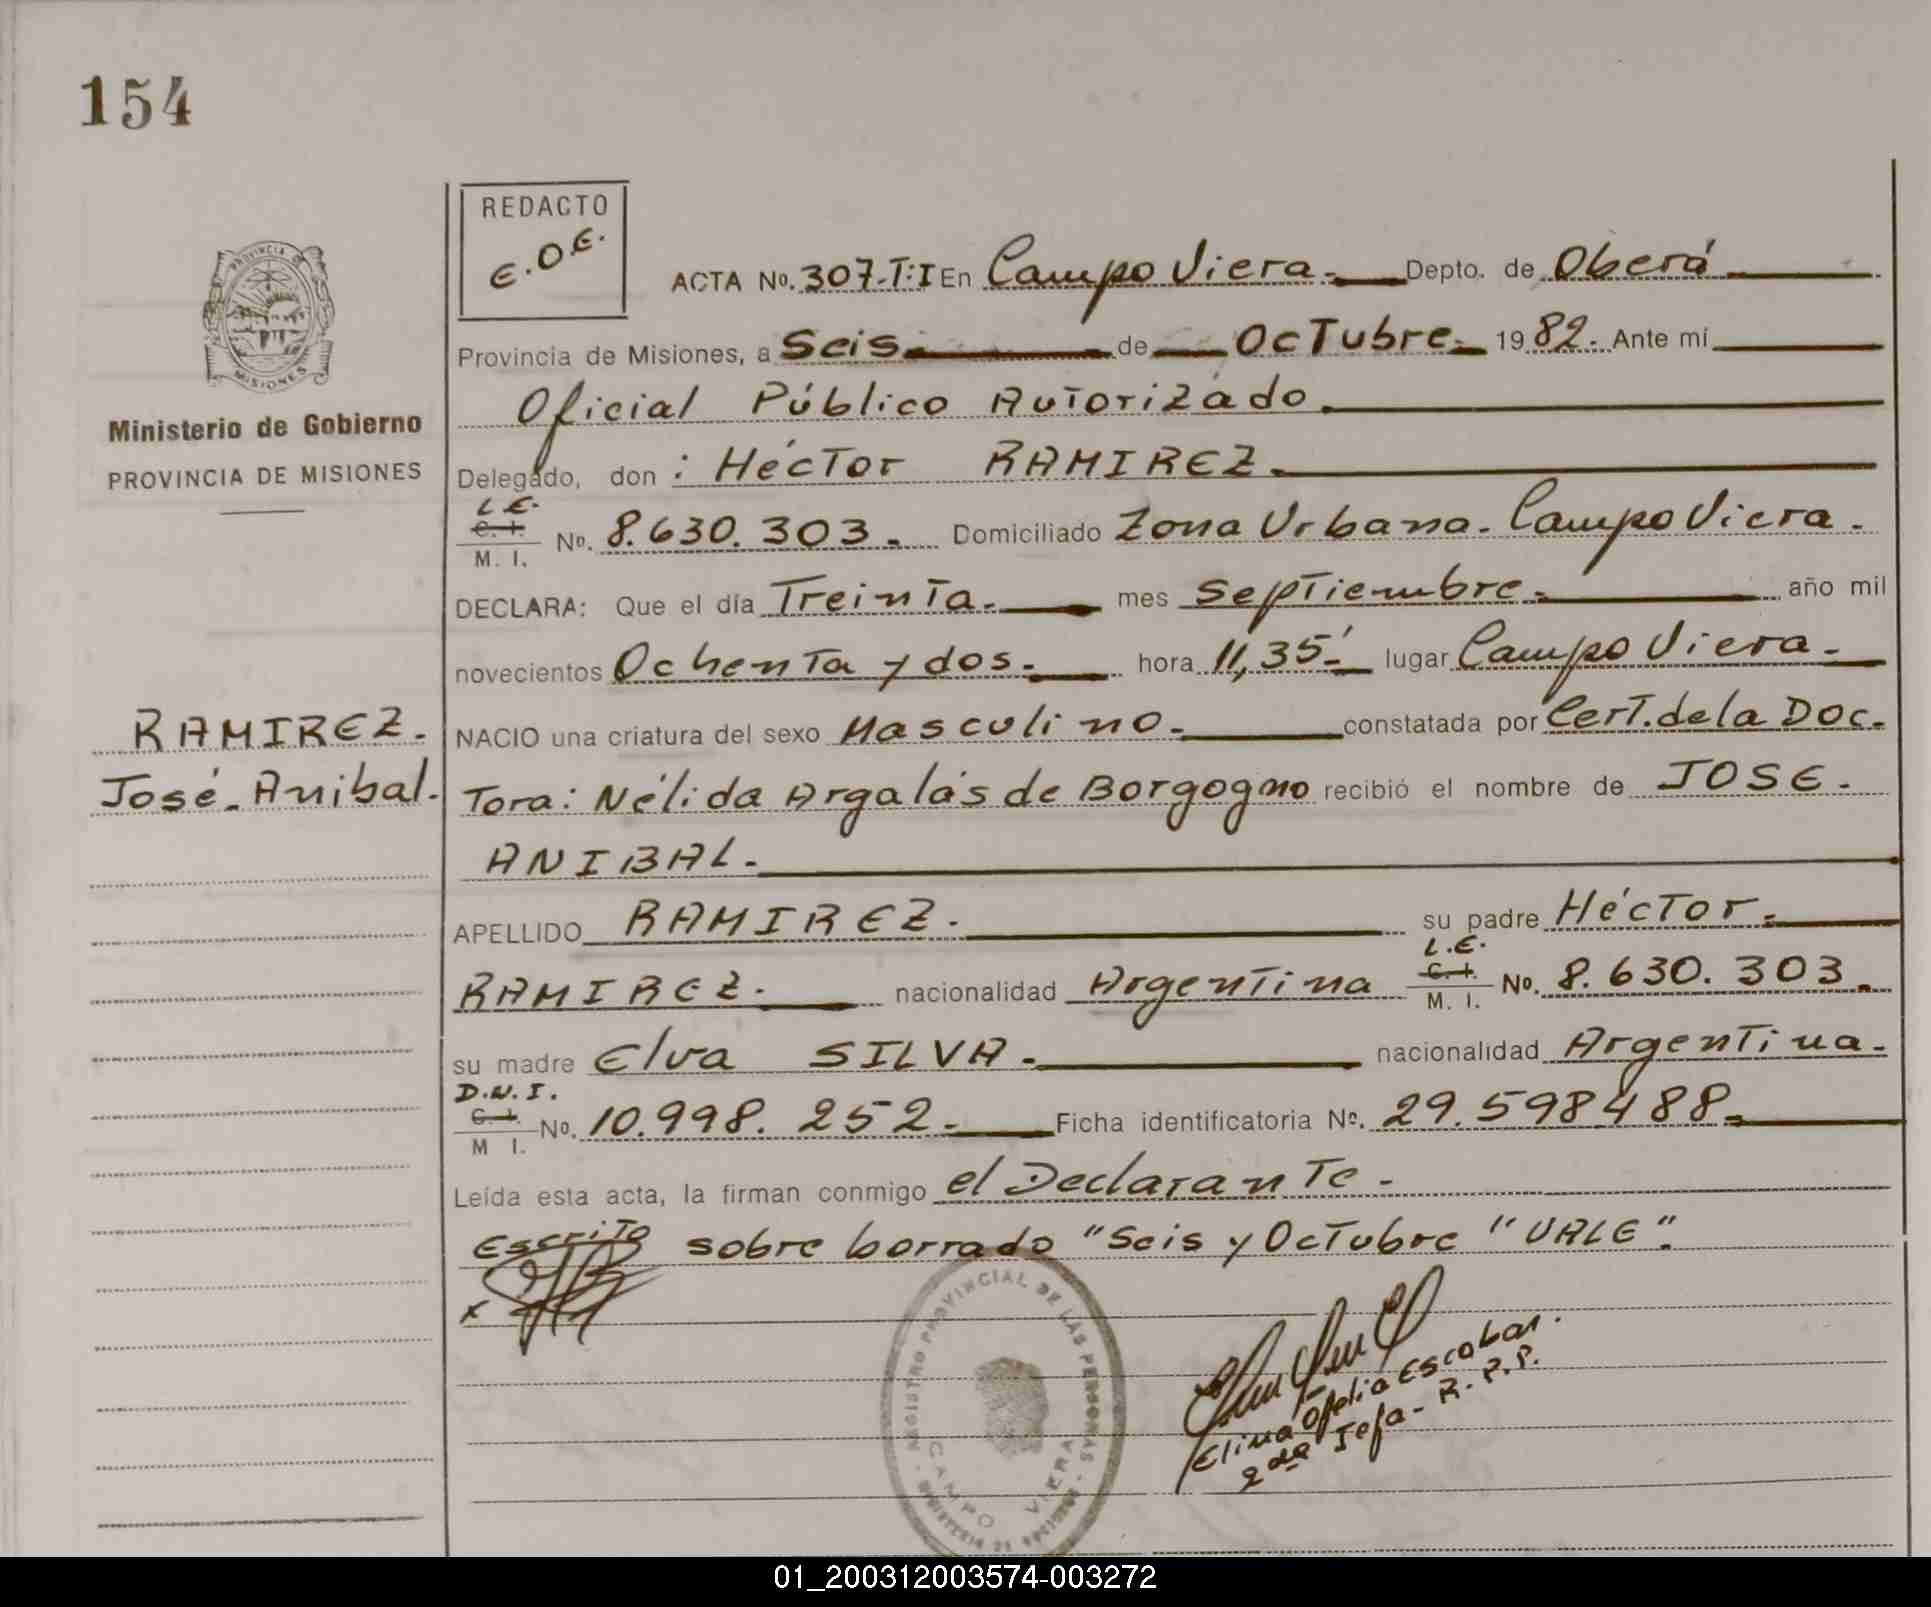 154
REDACTO
E.O.E.
PROVINCIA DE
MISIONES
Ministerio de Gobierno
PROVINCIA DE MISIONES
RAMIREZ.
José Anibal.
ACTA No. 307-T:I En Campo Viera. Depto. de Oberá
Provincia de Misiones, a Seis de Octubre 1982. Ante mí
Oficial Público Autorizado.
Delegado, don : Héctor RAMIREZ.
L.E.
C. I.
M. I. No. 8.630.303. Domiciliado Zona Urbana. Campo Viera.
DECLARA: Que el día Treinta. mes Septiembre. año mil
novecientos Ochenta y dos. hora 11,35' lugar Campo Viera.
NACIO una criatura del sexo Masculino. constatada por Cert. de la Doc.
Tora: Nélida Argalás de Borgogno recibió el nombre de JOSE.
ANIBAL.
APELLIDO RAMIREZ. su padre Héctor.
RAMIREZ. nacionalidad Argentina L.E. C. I. M. I. No. 8.630.303.
su madre Elva SILVA. nacionalidad Argentina.
D.N.I.
C. I.
M I. No. 10.998.252. Ficha identificatoria No. 29.598488.
Leída esta acta, la firman conmigo el Declarante.
Escrito sobre borrado "Seis y Octubre "VALE".
x
REGISTRO PROVINCIAL DE LAS PERSONAS
CAMPO VIERA
Elina Ofelia Escobar.
2da Jefa - R.P.P.
01_200312003574-003272